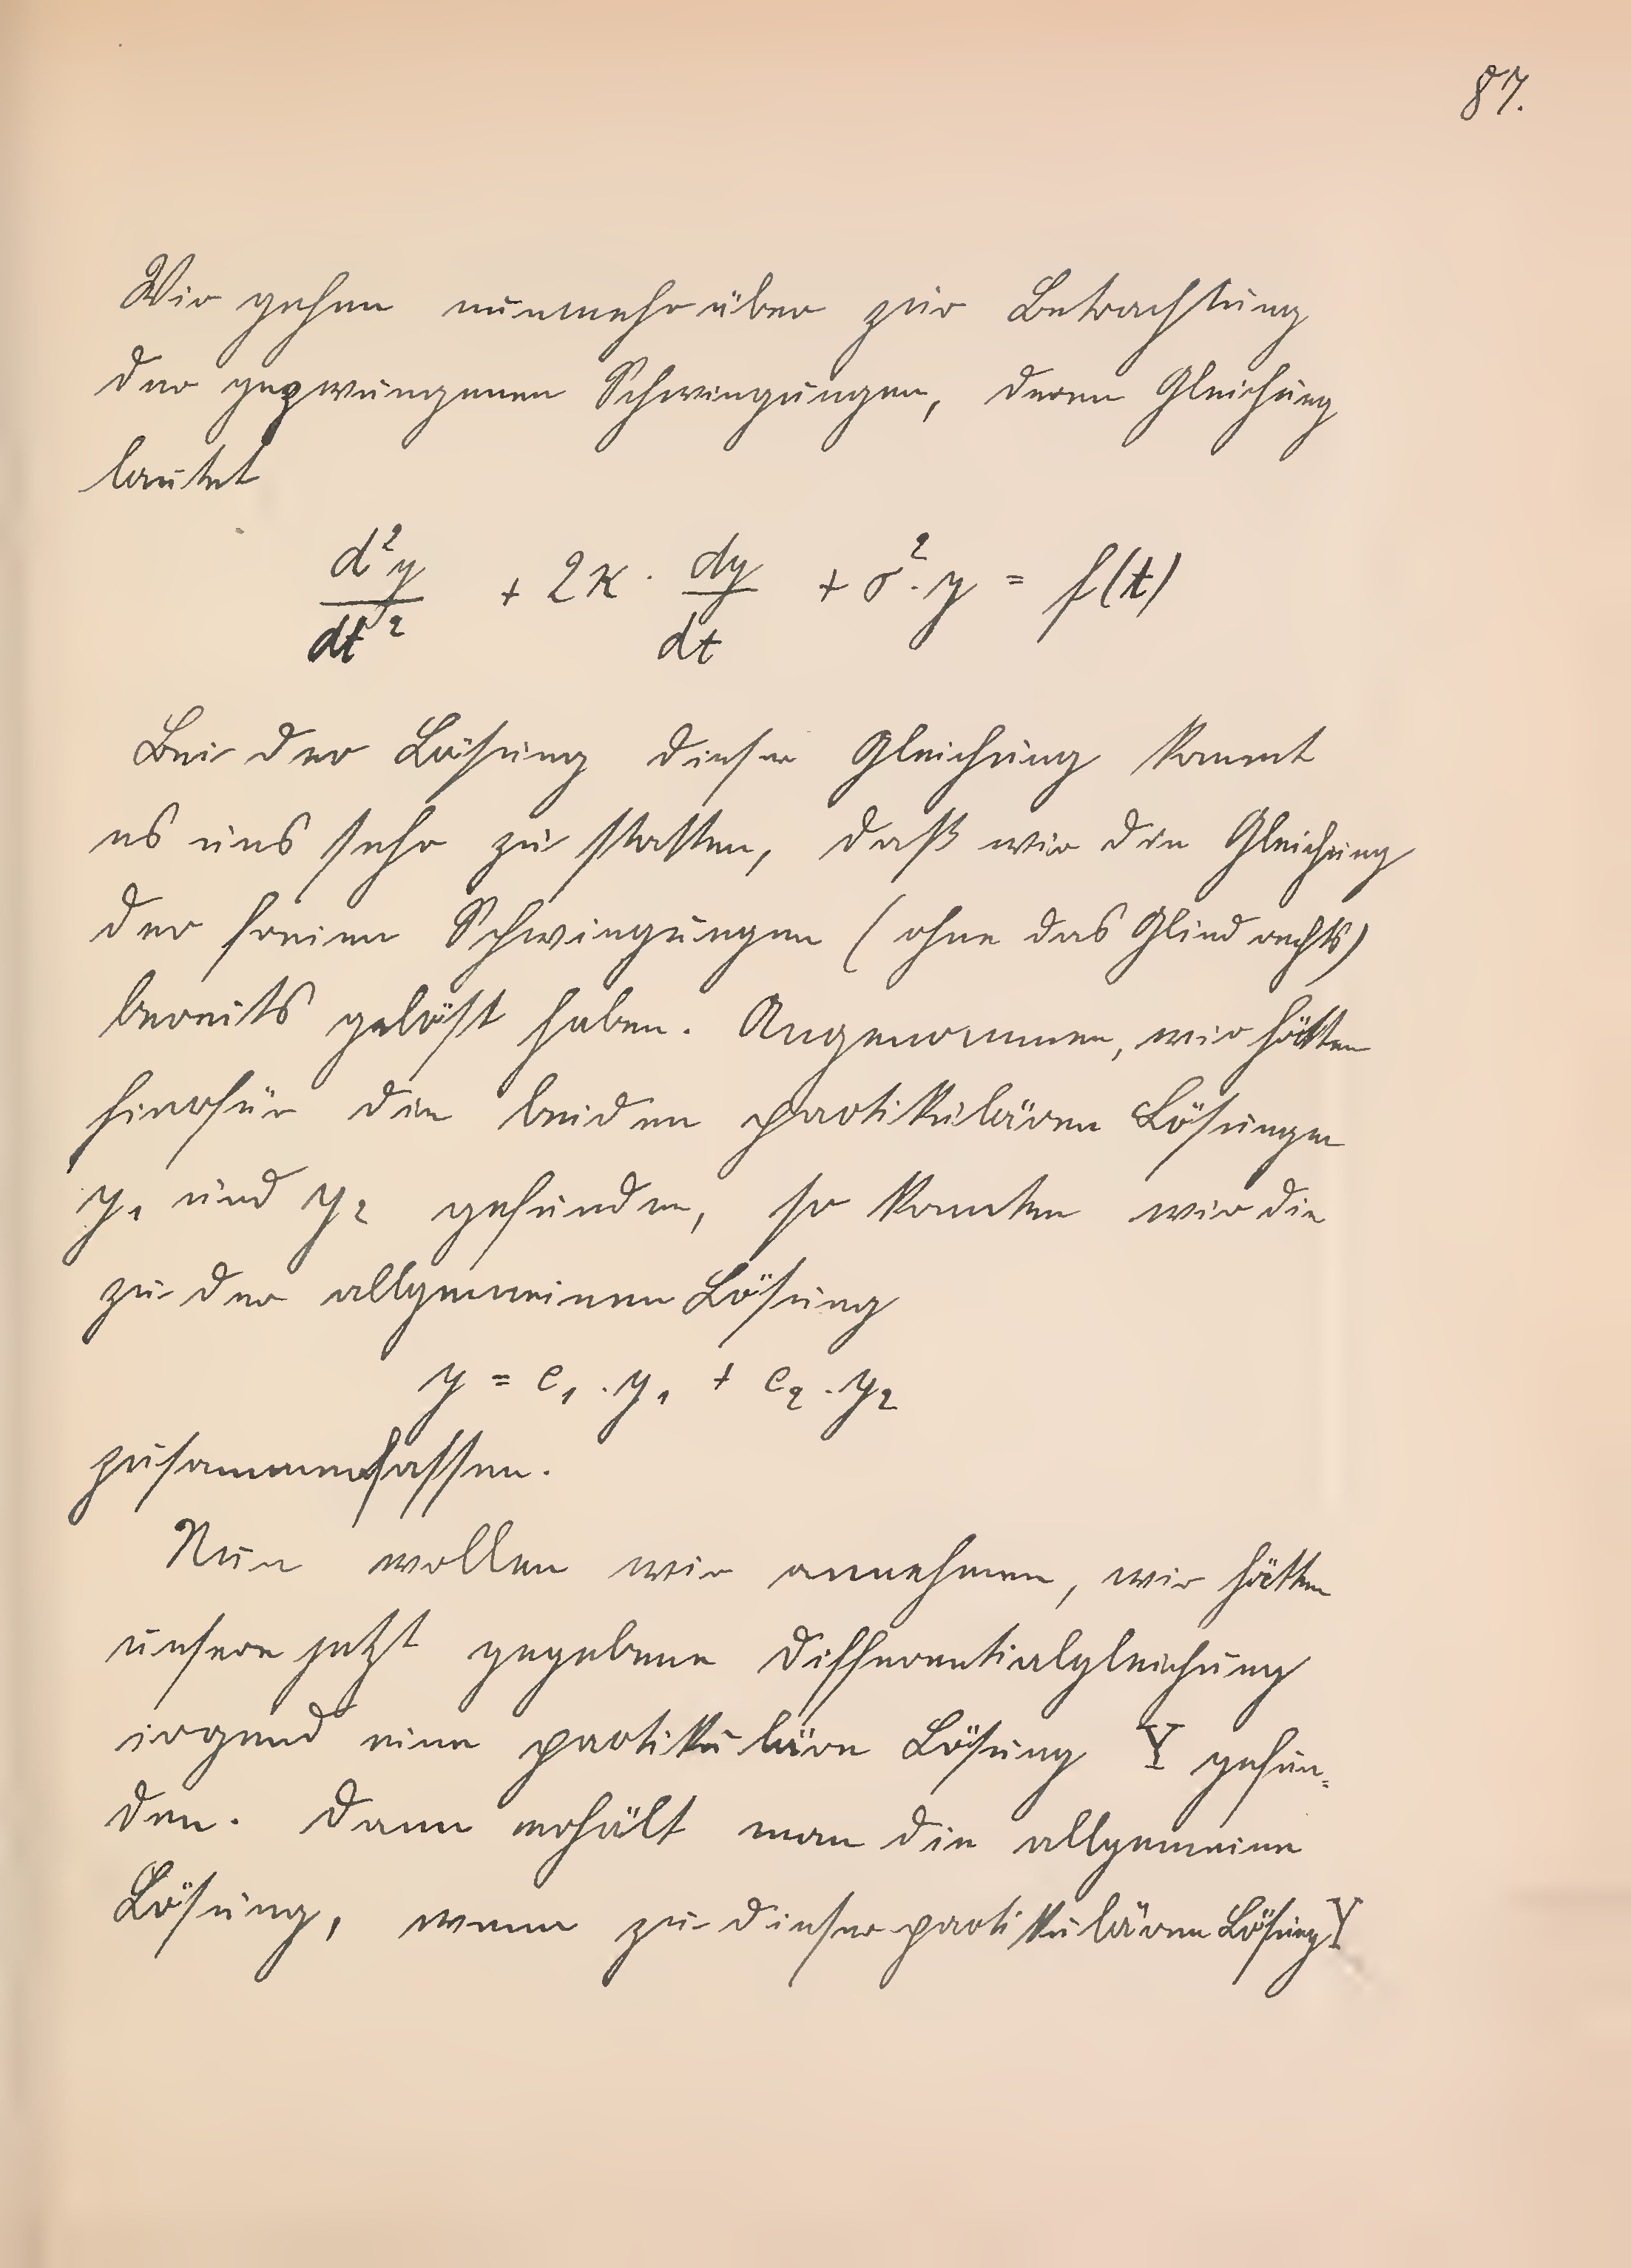 87.
Wir gehen nunmehr über zur Betrachtung
der gezwungenen Schwingungen, deren Gleichung
lautet
d²y/dt² + 2κ · dy/dt + σ² · y = f(t)
Bei der Lösung dieser Gleichung kommt
es uns sehr zu statten, daß wir die Gleichung
der freien Schwingungen (ohne das Glied rechts)
bereits gelöst haben. Angenommen, wir hätten
hierfür die beiden partikulären Lösungen
y₁ und y₂ gefunden, so konnten wir die
zu der allgemeinen Lösung
y = c₁ · y₁ + c₂ · y₂
zusammenfassen.
Nun wollen wir annehmen, wir hätten
unsere jetzt gegebene Differentialgleichung
irgend eine partikuläre Lösung Y gefun-
den. Dann erhält man die allgemeine
Lösung, wenn zu dieser partikulären Lösung Y